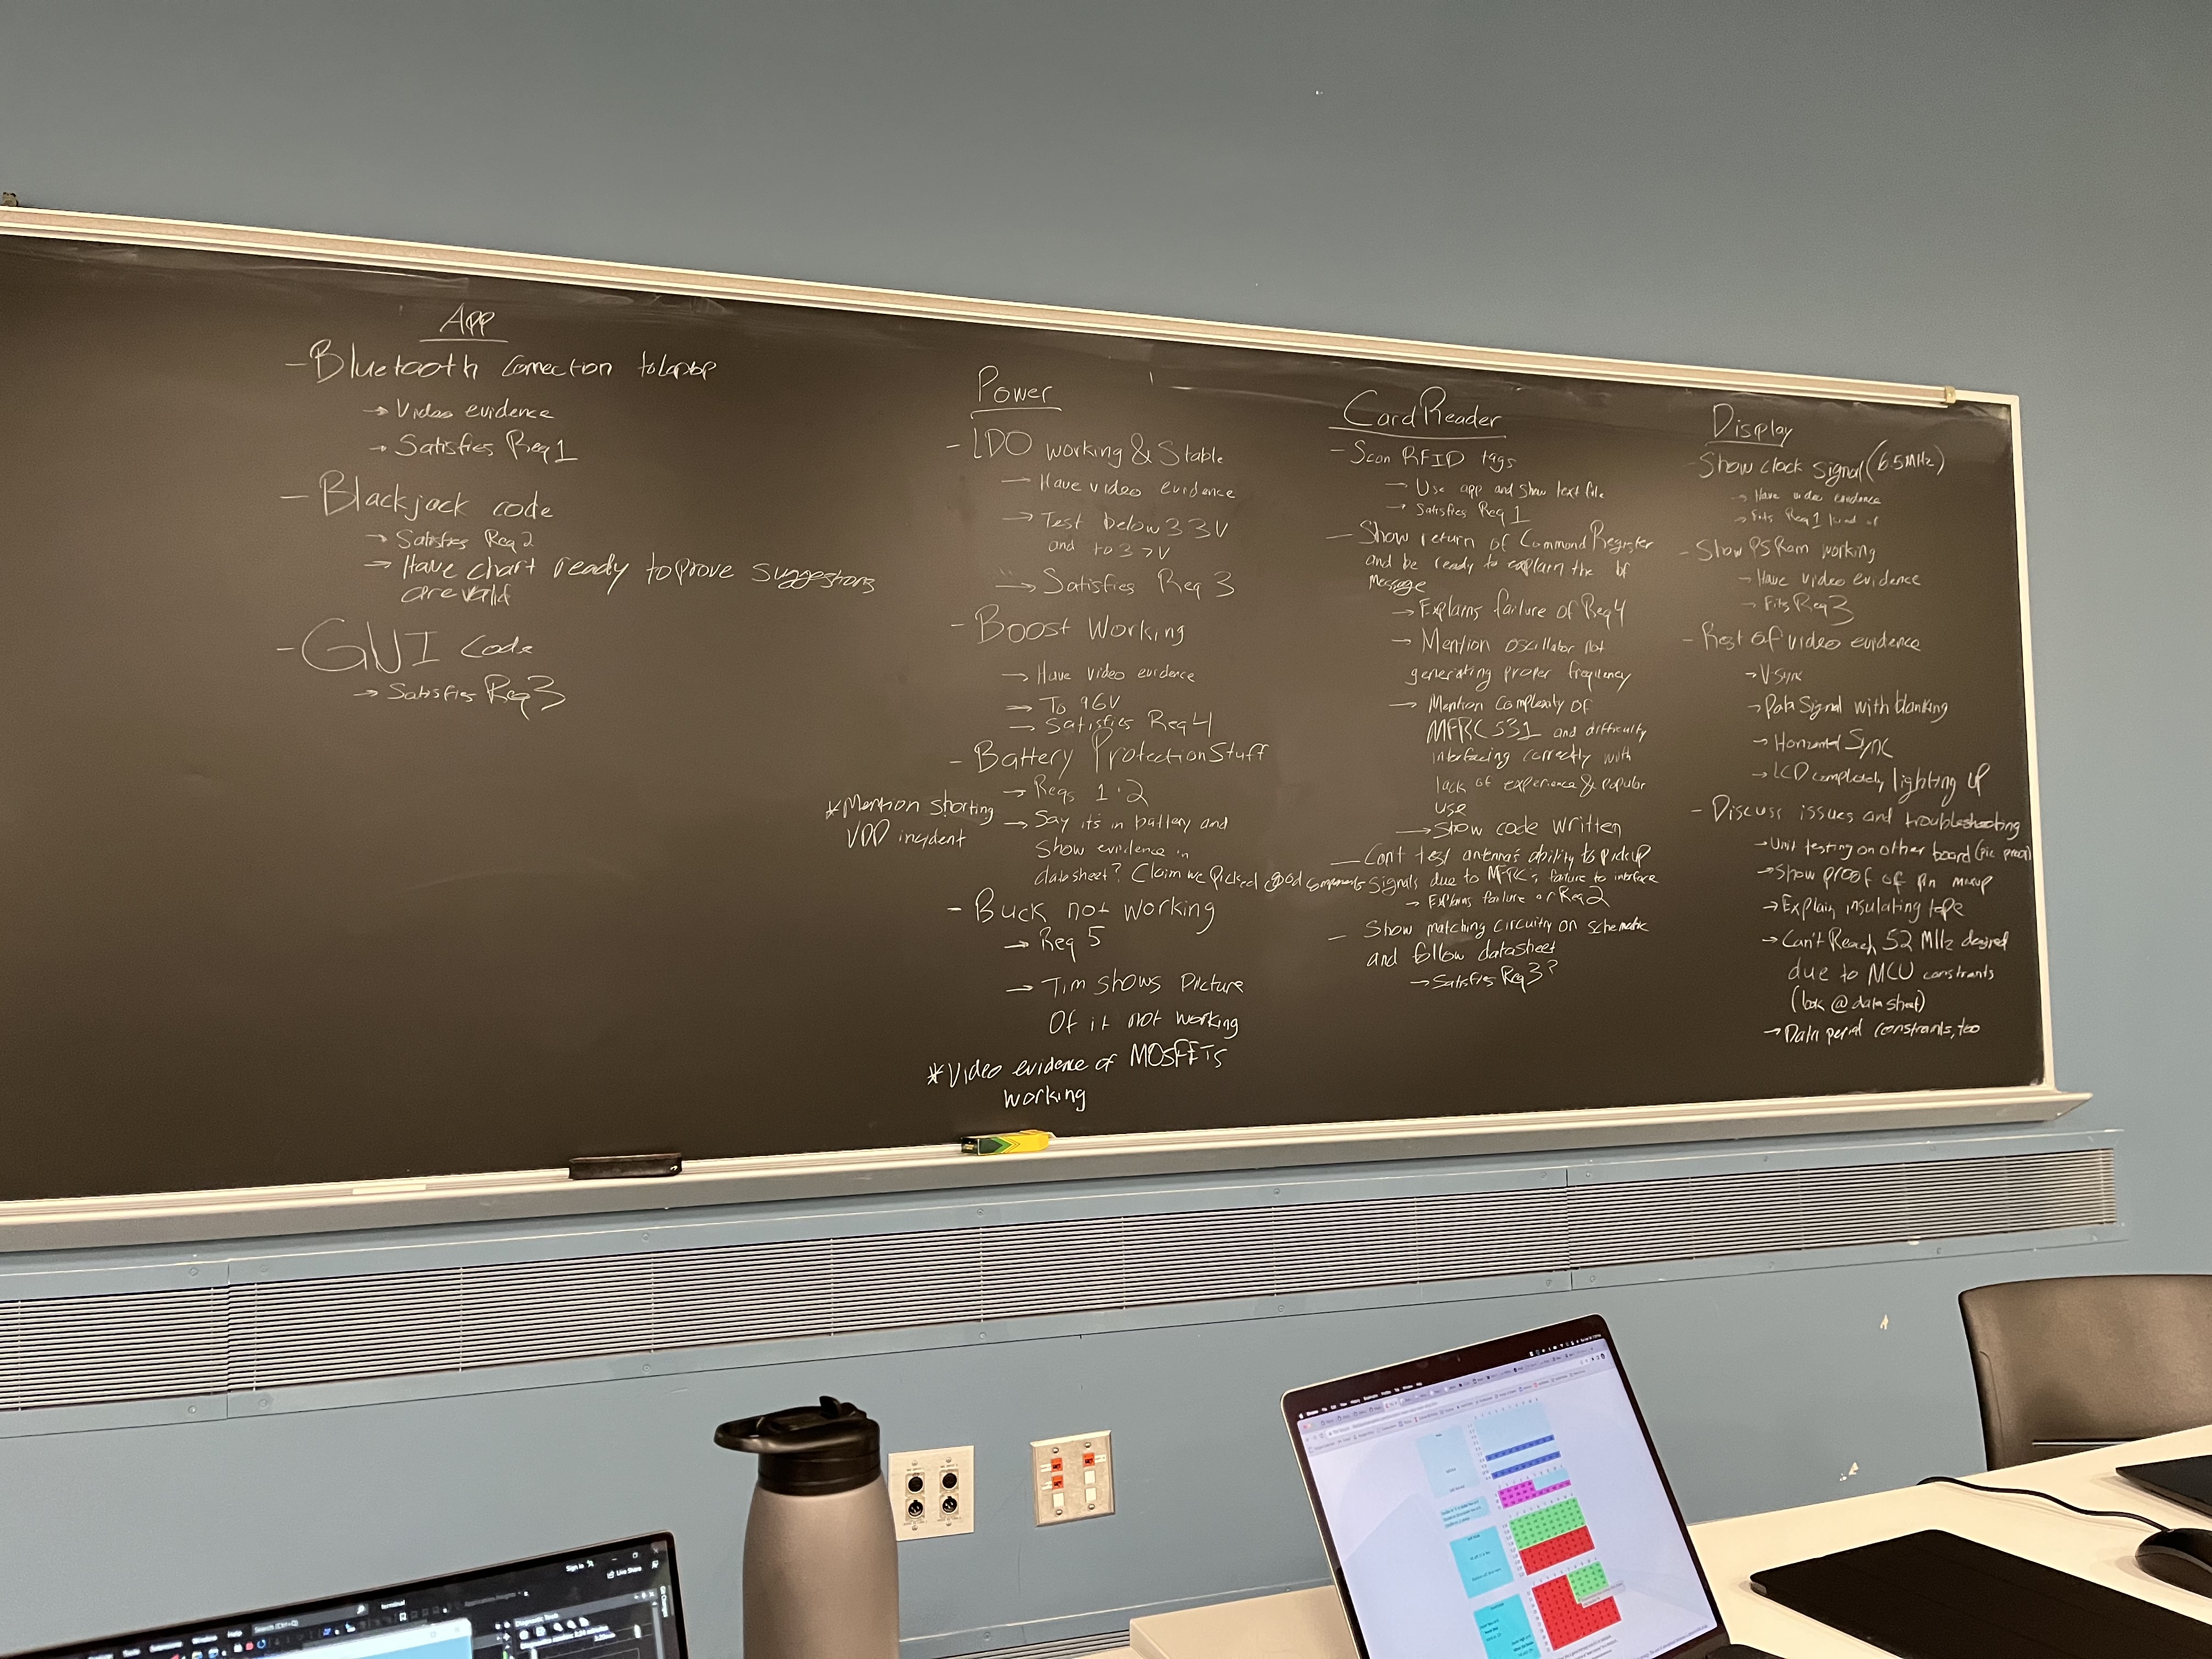 App
- Bluetooth connection to Laptop
→ Video evidence
→ Satisfies Req 1
- Blackjack code
→ Satisfies Req 2
→ Have chart ready to prove suggestions
are valid
- GUI Code
→ Satisfies Req 3
Power
- LDO working & Stable
→ Have video evidence
→ Test below 3.3V
and to 3.7V
→ Satisfies Req 3
- Boost Working
→ Have video evidence
→ To 9.6V
→ Satisfies Req 4
- Battery Protection Stuff
→ Reqs 1 + 2
→ Say it's in battery and
Show evidence in
datasheet? Claim we picked good components
* Mention shorting
VDD incident
- Buck not working
→ Req 5
→ Tim shows Picture
Of it not working
* Video evidence of MOSFETs
working
Card Reader
- Scan RFID tags
→ Use app and show text file
→ Satisfies Req 1
- Show return of Command Register
and be ready to explain the bf
Message
→ Explains failure of Req 4
→ Mention oscillator not
generating proper frequency
→ Mention Complexity of
MFRC 531 and difficulty
interfacing correctly with
lack of experience & popular
use
→ Show code written
- Can't test antenna's ability to pick up
signals due to MFRC's failure to interface
→ Explains failure of Req 2
- Show matching circuitry on schematic
and follow datasheet
→ Satisfies Req 3?
Display
- Show clock signal (6.5 MHz)
→ Have video evidence
→ Fits Req 1 kind of
- Show PSRam working
→ Have video evidence
→ Fits Req 3
- Rest of video evidence
→ V-Sync
→ Data Signal with blanking
→ Horizontal Sync
→ LCD completely lighting up
- Discuss issues and troubleshooting
→ Unit testing on other board (pic proof)
→ Show proof of pin mixup
→ Explain insulating tape
→ Can't Reach 52 MHz desired
due to MCU constraints
(look @ datasheet)
→ Data period constraints, too